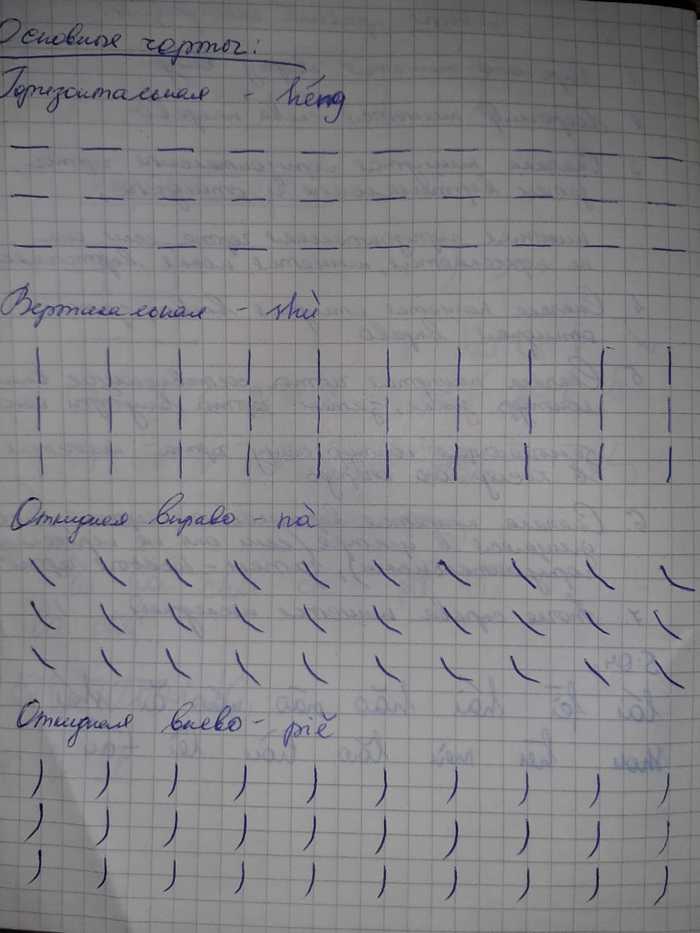 Основные черты:
Горизонтальная - héng
Вертикальная - shù
Откидная вправо - nà
Откидная влево - piě